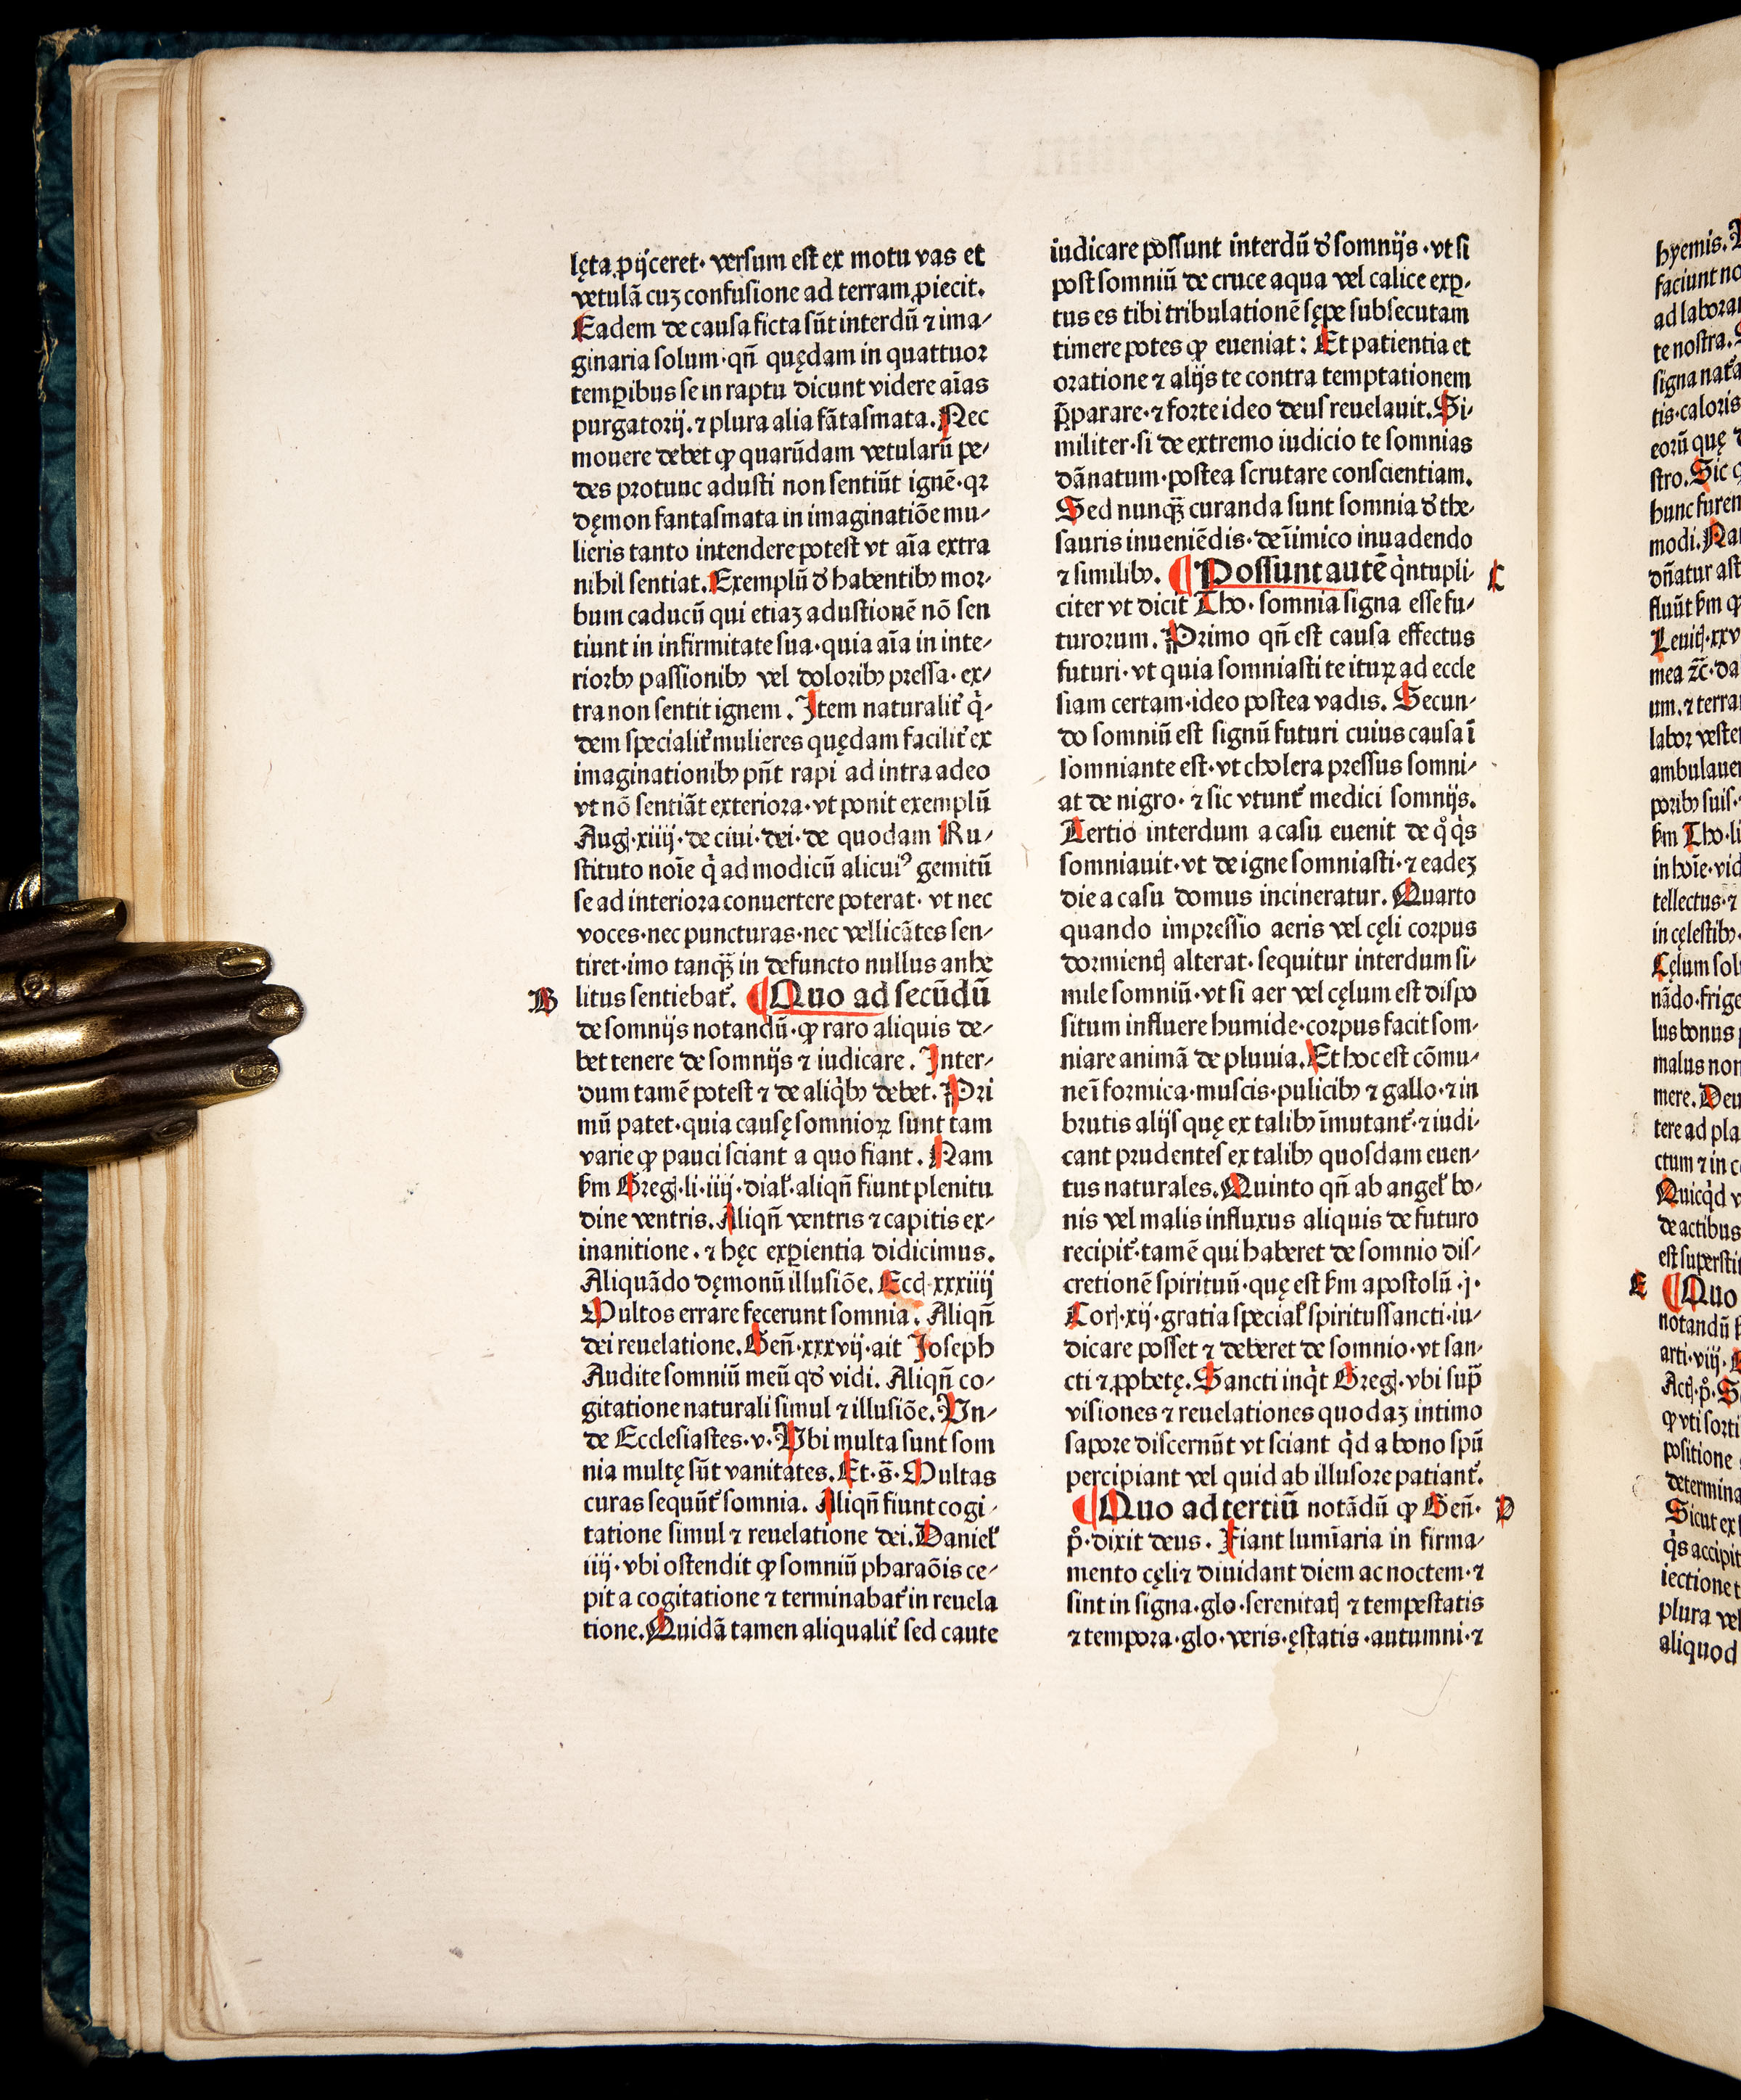 lęta ꝓijceret· versum est ex motu vas et
vetulā cuꝫ confusione ad terram ꝓiecit.
Eadem de causa ficta sūt interdū ⁊ ima/
ginaria solum·qn̄ quędam in quattuor
temꝑibus se in raptu dicunt videre aīas
purgatorij.⁊ plura alia fātasmata.Nec
mouere debet ꝙ quarūdam vetularū pe/
des protunc adusti non sentiūt ignē·qꝛ
dęmon fantasmata in imaginatiōe mu/
lieris tanto intendere potest vt aīa extra
nihil sentiat.Exemplū đ habentibꝰ mor/
bum caducū qui etiaꝫ adustionē nō sen
tiunt in infirmitate sua·quia aīa in inte/
rioribꝰ passionibꝰ vel doloribꝰ pressa·ex/
tra non sentit ignem. Item naturalit᷑ q̇/
dem specialit᷑ mulieres quędam facilit᷑ ex
imaginationibꝰ pn̄t rapi ad intra adeo
vt nō sentiāt exteriora·vt ponit exemplū
Augꝭ·xiiij·de ciui·dei·de quodam Ru/
stituto noīe q̇ ad modicū alicuiꝰ gemitū
se ad interiora conuertere poterat· vt nec
voces·nec puncturas·nec vellicātes sen/
tiret·imo tanqꝫ̄ in defuncto nullus anhe
B litus sentiebat᷑. ¶Quo ad secūdū
de somnijs notandū·ꝙ raro aliquis de/
bet tenere de somnijs ⁊ iudicare. Inter/
dum tamē potest ⁊ de aliq̇bꝰ debet. Pri
mū patet·quia causę somnioꝝ sunt tam
varie ꝙ pauci sciant a quo fiant. Nam
ẜm Gregꝭ·li·iiij·dial̓·aliqn̄ fiunt plenitu
dine ventris.Aliqn̄ ventris ⁊ capitis ex/
inanitione.⁊ hęc exꝑientia didicimus.
Aliquādo dęmonū illusiōe.Eccꝭ·xxxiiij
Multos errare fecerunt somnia. Aliqn̄
dei reuelatione.Gen̄·xxxvij·ait Ioseph
Audite somniū meū qđ vidi. Aliqn̄ co/
gitatione naturali simul ⁊ illusiōe.Vn/
de Ecclesiastes·v·Vbi multa sunt som
nia multę sūt vanitates.Et·s̄·Multas
curas sequūt᷑ somnia. Aliqn̄ fiunt cogi/
tatione simul ⁊ reuelatione dei.Daniel̓
iiij·vbi ostendit ꝙ somniū pharaōis ce/
pit a cogitatione ⁊ terminabat᷑ in reuela
tione.Quidā tamen aliqualit᷑ sed caute
iudicare possunt interdū đ somnijs·vt si
post somniū de cruce aqua vel calice exꝑ/
tus es tibi tribulationē sępe subsecutam
timere potes ꝙ eueniat: Et patientia et
oratione ⁊ alijs te contra temptationem
p̄parare·⁊ forte ideo deus reuelauit.Si/
militer·si de extremo iudicio te somnias
dānatum·postea scrutare conscientiam.
Sed nunqꝫ̄ curanda sunt somnia đ the/
sauris inueniēdis·de īimico inuadendo
⁊ similibꝰ. ¶Possunt autē q̇ntupli/ C
citer vt dicit Tho·somnia signa esse fu/
turorum.Primo qn̄ est causa effectus
futuri·vt quia somniasti te ituꝝ ad eccle
siam certam·ideo postea vadis.Secun/
do somniū est signū futuri cuius causa ī
somniante est·vt cholera pressus somni/
at de nigro·⁊ sic vtunt᷑ medici somnijs.
Tertio interdum a casu euenit de qͦ q̇s
somniauit·vt de igne somniasti·⁊ eadeꝫ
die a casu domus incineratur. Quarto
quando impressio aeris vel cęli corpus
dormientꝭ alterat·sequitur interdum si/
mile somniū·vt si aer vel cęlum est dispo
situm influere humide·corpus facit som/
niare animā de pluuia.Et hoc est cōmu/
ne ī formica·muscis·pulicibꝰ ⁊ gallo·⁊ in
brutis alijs quę ex talibꝰ īmutant᷑·⁊ iudi/
cant prudentes ex talibꝰ quosdam euen/
tus naturales.Quinto qn̄ ab angel̓ bo/
nis vel malis influxus aliquis de futuro
recipit᷑·tamē qui haberet de somnio dis/
cretionē spirituū·quę est ẜm apostolū·j·
Corꝭ·xij·gratia special̓ spiritussancti·iu/
dicare posset ⁊ deberet de somnio·vt san/
cti ⁊ ꝓphetę.Sancti inq̇t Gregꝭ·vbi sup̄
visiones ⁊ reuelationes quodaꝫ intimo
sapore discernūt vt sciant q̇d a bono spū
percipiant vel quid ab illusore patiant᷑.
¶Quo ad tertiū notādū ꝙ Gen̄· D
pͦ·dixit deus. Fiant lumīaria in firma/
mento cęli⁊ diuidant diem ac noctem·⁊
sint in signa·glo·serenitatꝭ ⁊ tempestatis
⁊ tempora·glo·veris·ęstatis·autumni·⁊